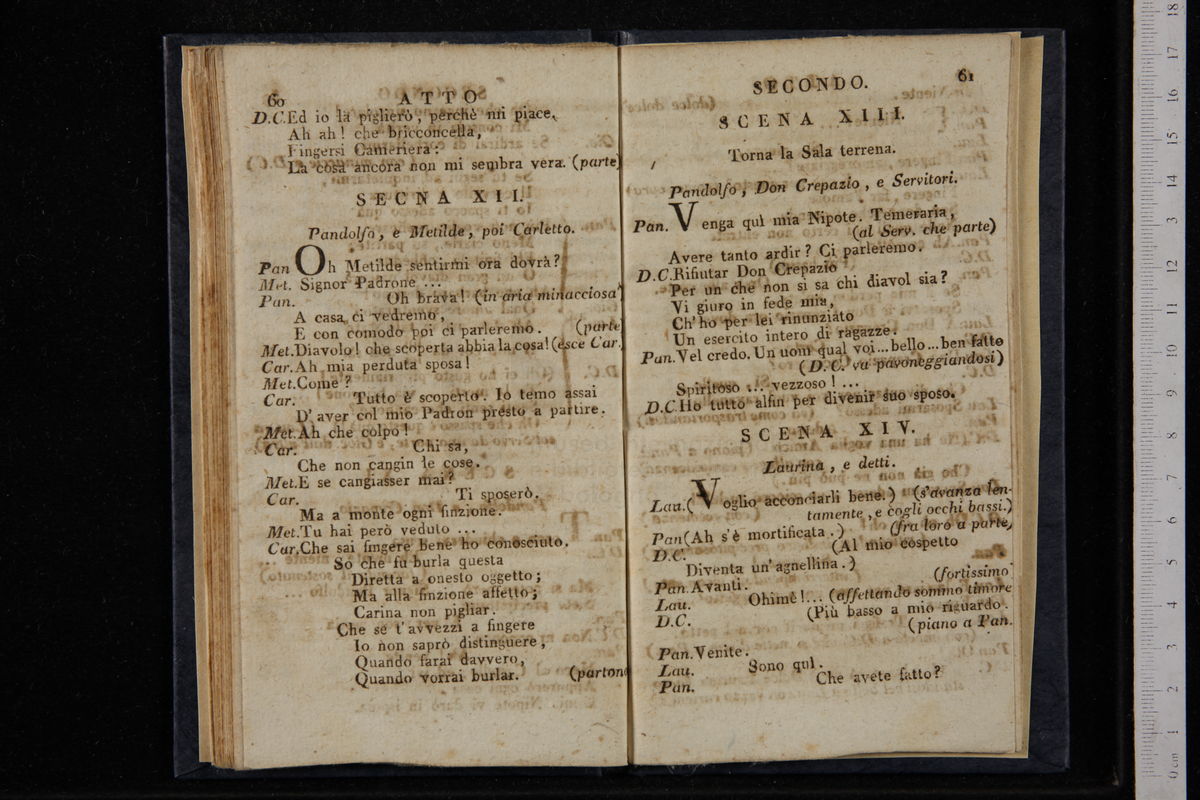 60
ATTO
D.C.Ed io la piglierò, perchè mi piace.
Ah ah! che bricconcella,
Fingersi Cameriera:
La cosa ancora non mi sembra vera. (parte)
SECNA XII.
Pandolfo, e Metilde, poi Carletto.
Pan Oh Metilde sentirmi ora dovrà?
Met. Signor Padrone ...
Pan. Oh brava! (in aria minacciosa)
A casa ci vedremo,
E con comodo poi ci parleremo. (parte
Met.Diavolo! che scoperta abbia la cosa! (esce Car.
Car.Ah mia perduta sposa!
Met.Come?
Car. Tutto è scoperto. Io temo assai
D'aver col mio Padron presto a partire.
Met.Ah che colpo!
Car. Chi sa,
Che non cangin le cose.
Met.E se cangiasser mai?
Car. Ti sposerò.
Ma a monte ogni finzione.
Met.Tu hai però veduto ...
Car.Che sai fingere bene ho conosciuto.
So che fu burla questa
Diretta a onesto oggetto;
Ma alla finzione affetto;
Carina non pigliar.
Che se t'avvezzi a fingere
Io non saprò distinguere,
Quando farai davvero,
Quando vorrai burlar. (partono
SECONDO.
61
SCENA XIII.
Torna la Sala terrena.
Pandolfo, Don Crepazio, e Servitori.
Pan. Venga quì mia Nipote. Temeraria,
(al Serv. che parte)
Avere tanto ardir? Ci parleremo.
D.C.Rifiutar Don Crepazio
Per un che non si sa chi diavol sia?
Vi giuro in fede mia,
Ch'ho per lei rinunziato
Un esercito intero di ragazze.
Pan.Vel credo. Un uom qual voi...bello...ben fatto
(D. C. va pavoneggiandosi)
Spiritoso ... vezzoso! ...
D.C.Ho tutto alfin per divenir suo sposo.
SCENA XIV.
Laurina, e detti.
Lau.(Voglio acconciarli bene.) (s'avanza len-
tamente, e cogli occhi bassi.)
Pan(Ah s'è mortificata.) (fra loro a parte,
D.C. (Al mio cospetto
Diventa un'agnellina.)
Pan.Avanti. (fortissimo
Lau. Ohimè!... (affettando sommo timore
D.C. (Più basso a mio riguardo.
(piano a Pan.
Pan.Venite.
Lau. Sono quì.
Pan. Che avete fatto?